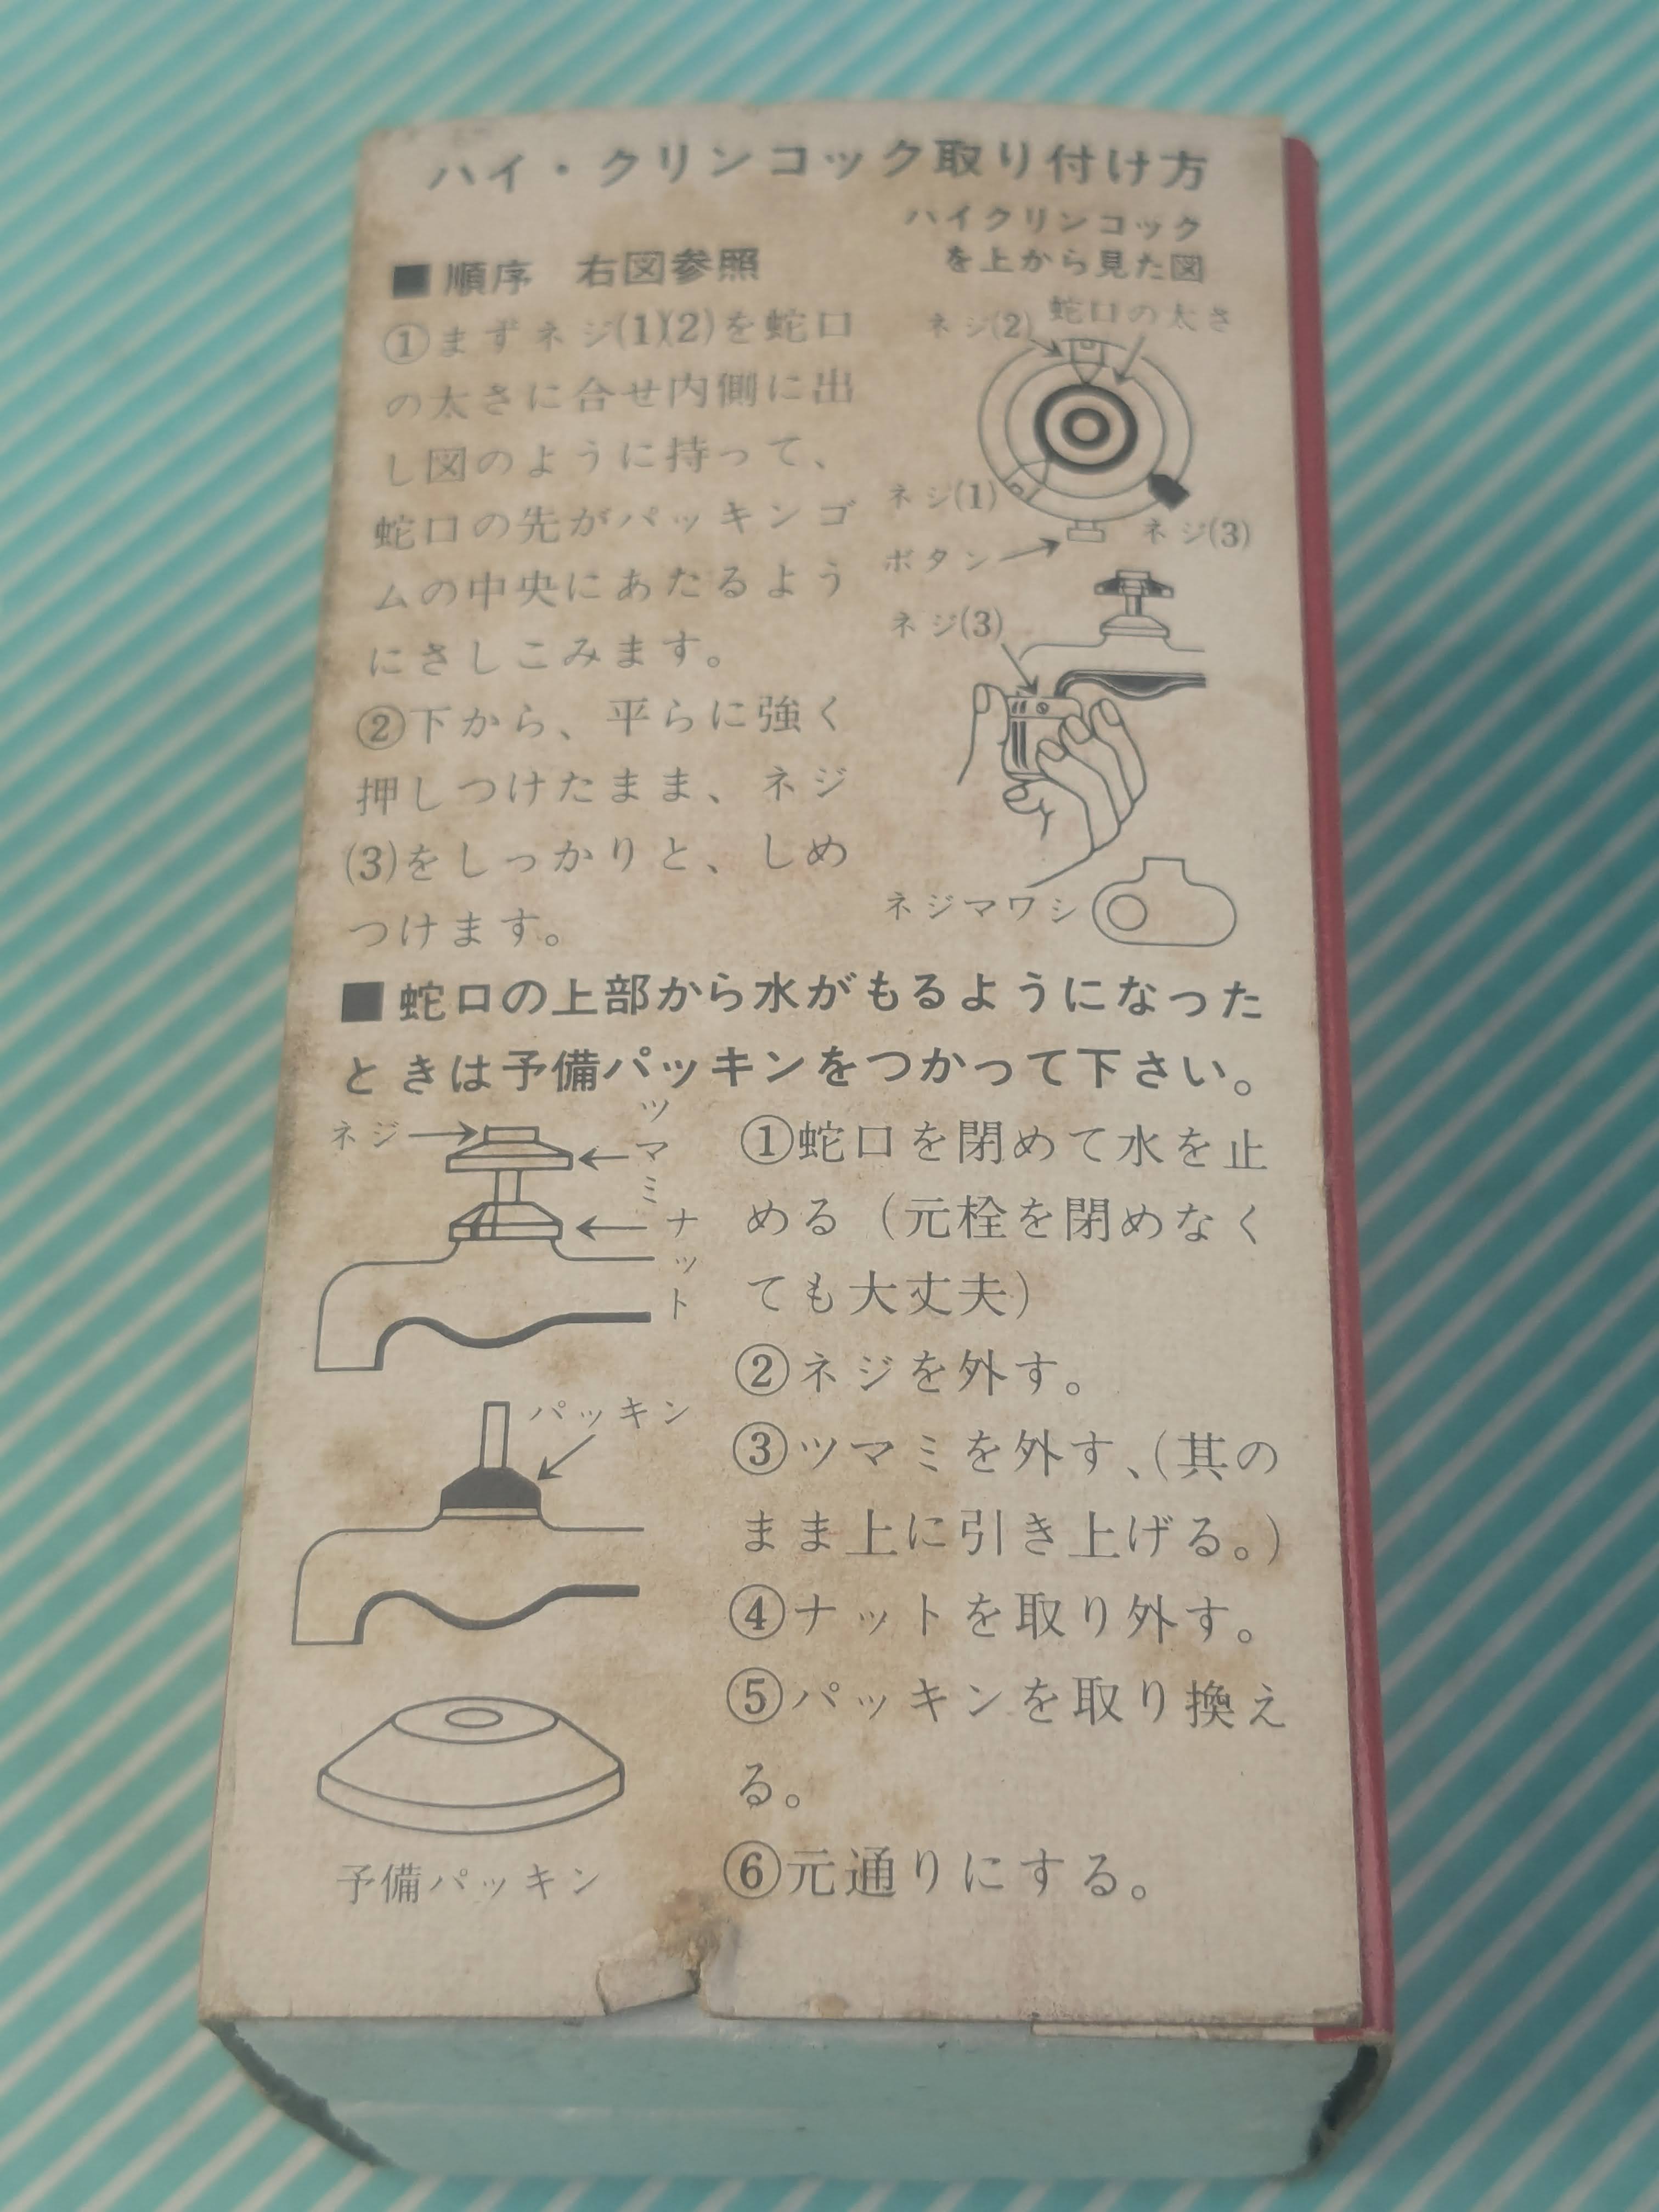 ハイ・クリンコック取り付け方
■順序　右図参照
①まずネジ(1)(2)を蛇口
の太さに合せ内側に出
し図のように持って、
蛇口の先がパッキンゴ
ムの中央にあたるよう
にさしこみます。
②下から、平らに強く
押しつけたまま、ネジ
(3)をしっかりと、しめ
つけます。
ハイクリンコック
を上から見た図
ネジ(2)
蛇口の太さ
ネジ(1)
ネジ(3)
ボタン
ネジ(3)
ネジマワシ
■蛇口の上部から水がもるようになった
ときは予備パッキンをつかって下さい。
ネジ
ツマミ
ナット
パッキン
予備パッキン
①蛇口を閉めて水を止
める（元栓を閉めなく
ても大丈夫）
②ネジを外す。
③ツマミを外す、（其の
まま上に引き上げる。）
④ナットを取り外す。
⑤パッキンを取り換え
る。
⑥元通りにする。